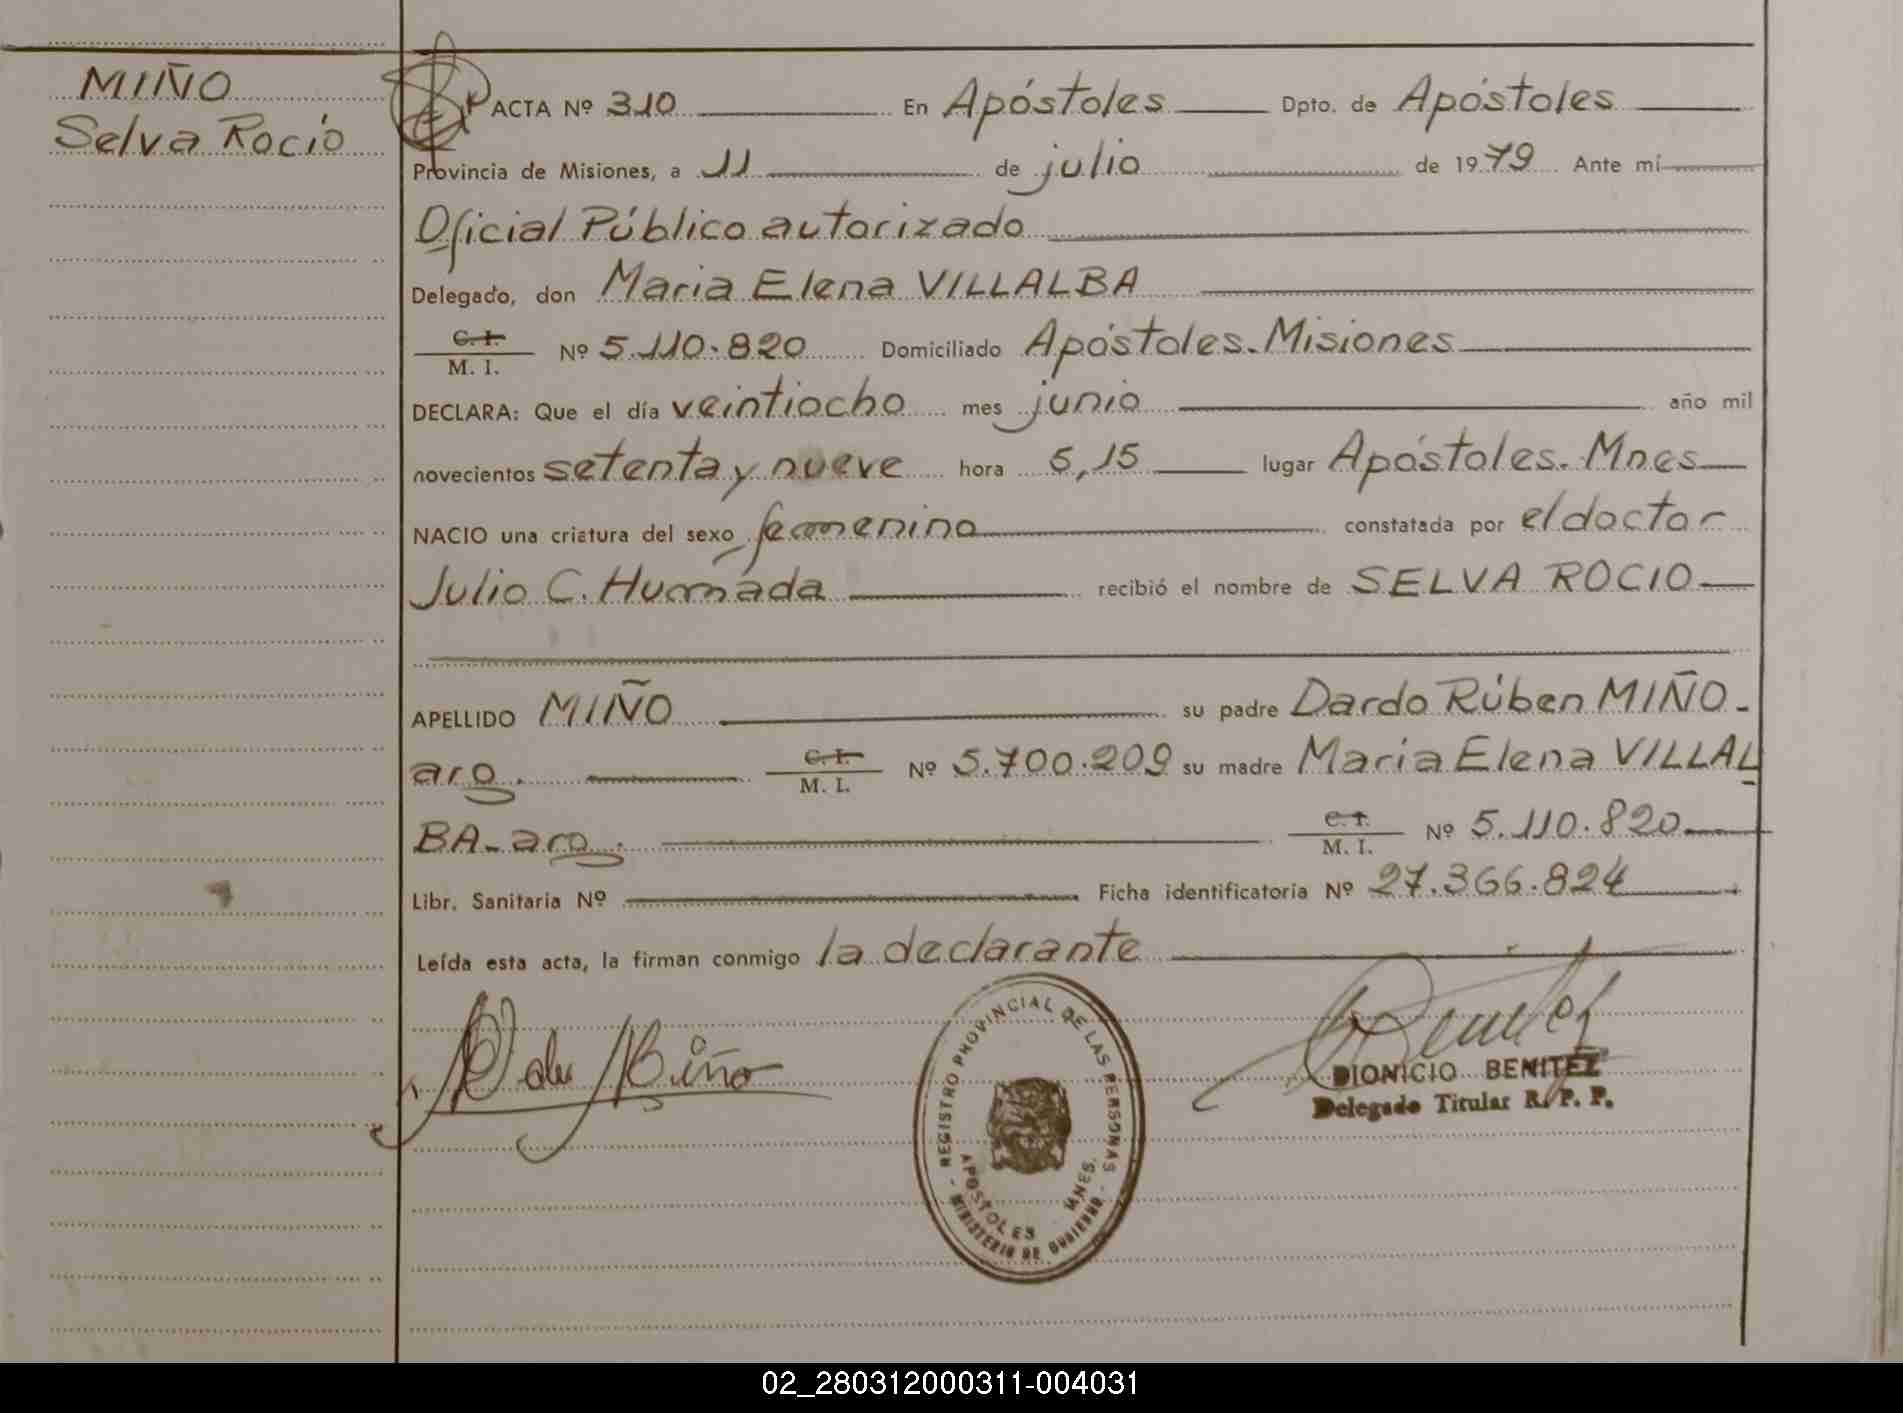 MIÑO
Selva Rocío
ACTA Nº 310 En Apóstoles Dpto. de Apóstoles
Provincia de Misiones, a 11 de julio de 1979 Ante mí
Oficial Público autorizado
Delegado, don Maria Elena VILLALBA
C. I.
M. I. Nº 5.110.820 Domiciliado Apóstoles. Misiones
DECLARA: Que el día veintiocho mes junio año mil
novecientos setenta y nueve hora 5,15 lugar Apóstoles. Mnes
NACIO una criatura del sexo femenino constatada por el doctor
Julio C. Humada recibió el nombre de SELVA ROCIO
APELLIDO MIÑO su padre Dardo Rúben MIÑO-
aro. C. I.
M. I. Nº 5.700.209 su madre Maria Elena VILLAL
BA- aro. C. I.
M. I. Nº 5.110.820
Libr. Sanitaria Nº Ficha identificatoria Nº 27.366.824
Leída esta acta, la firman conmigo la declarante
de Miño
REGISTRO PROVINCIAL DE LAS PERSONAS
APOSTOLES MNES.
- MINISTERIO DE GOBIERNO -
DIONICIO BENITEZ
Delegado Titular R. P. P.
02_280312000311-004031